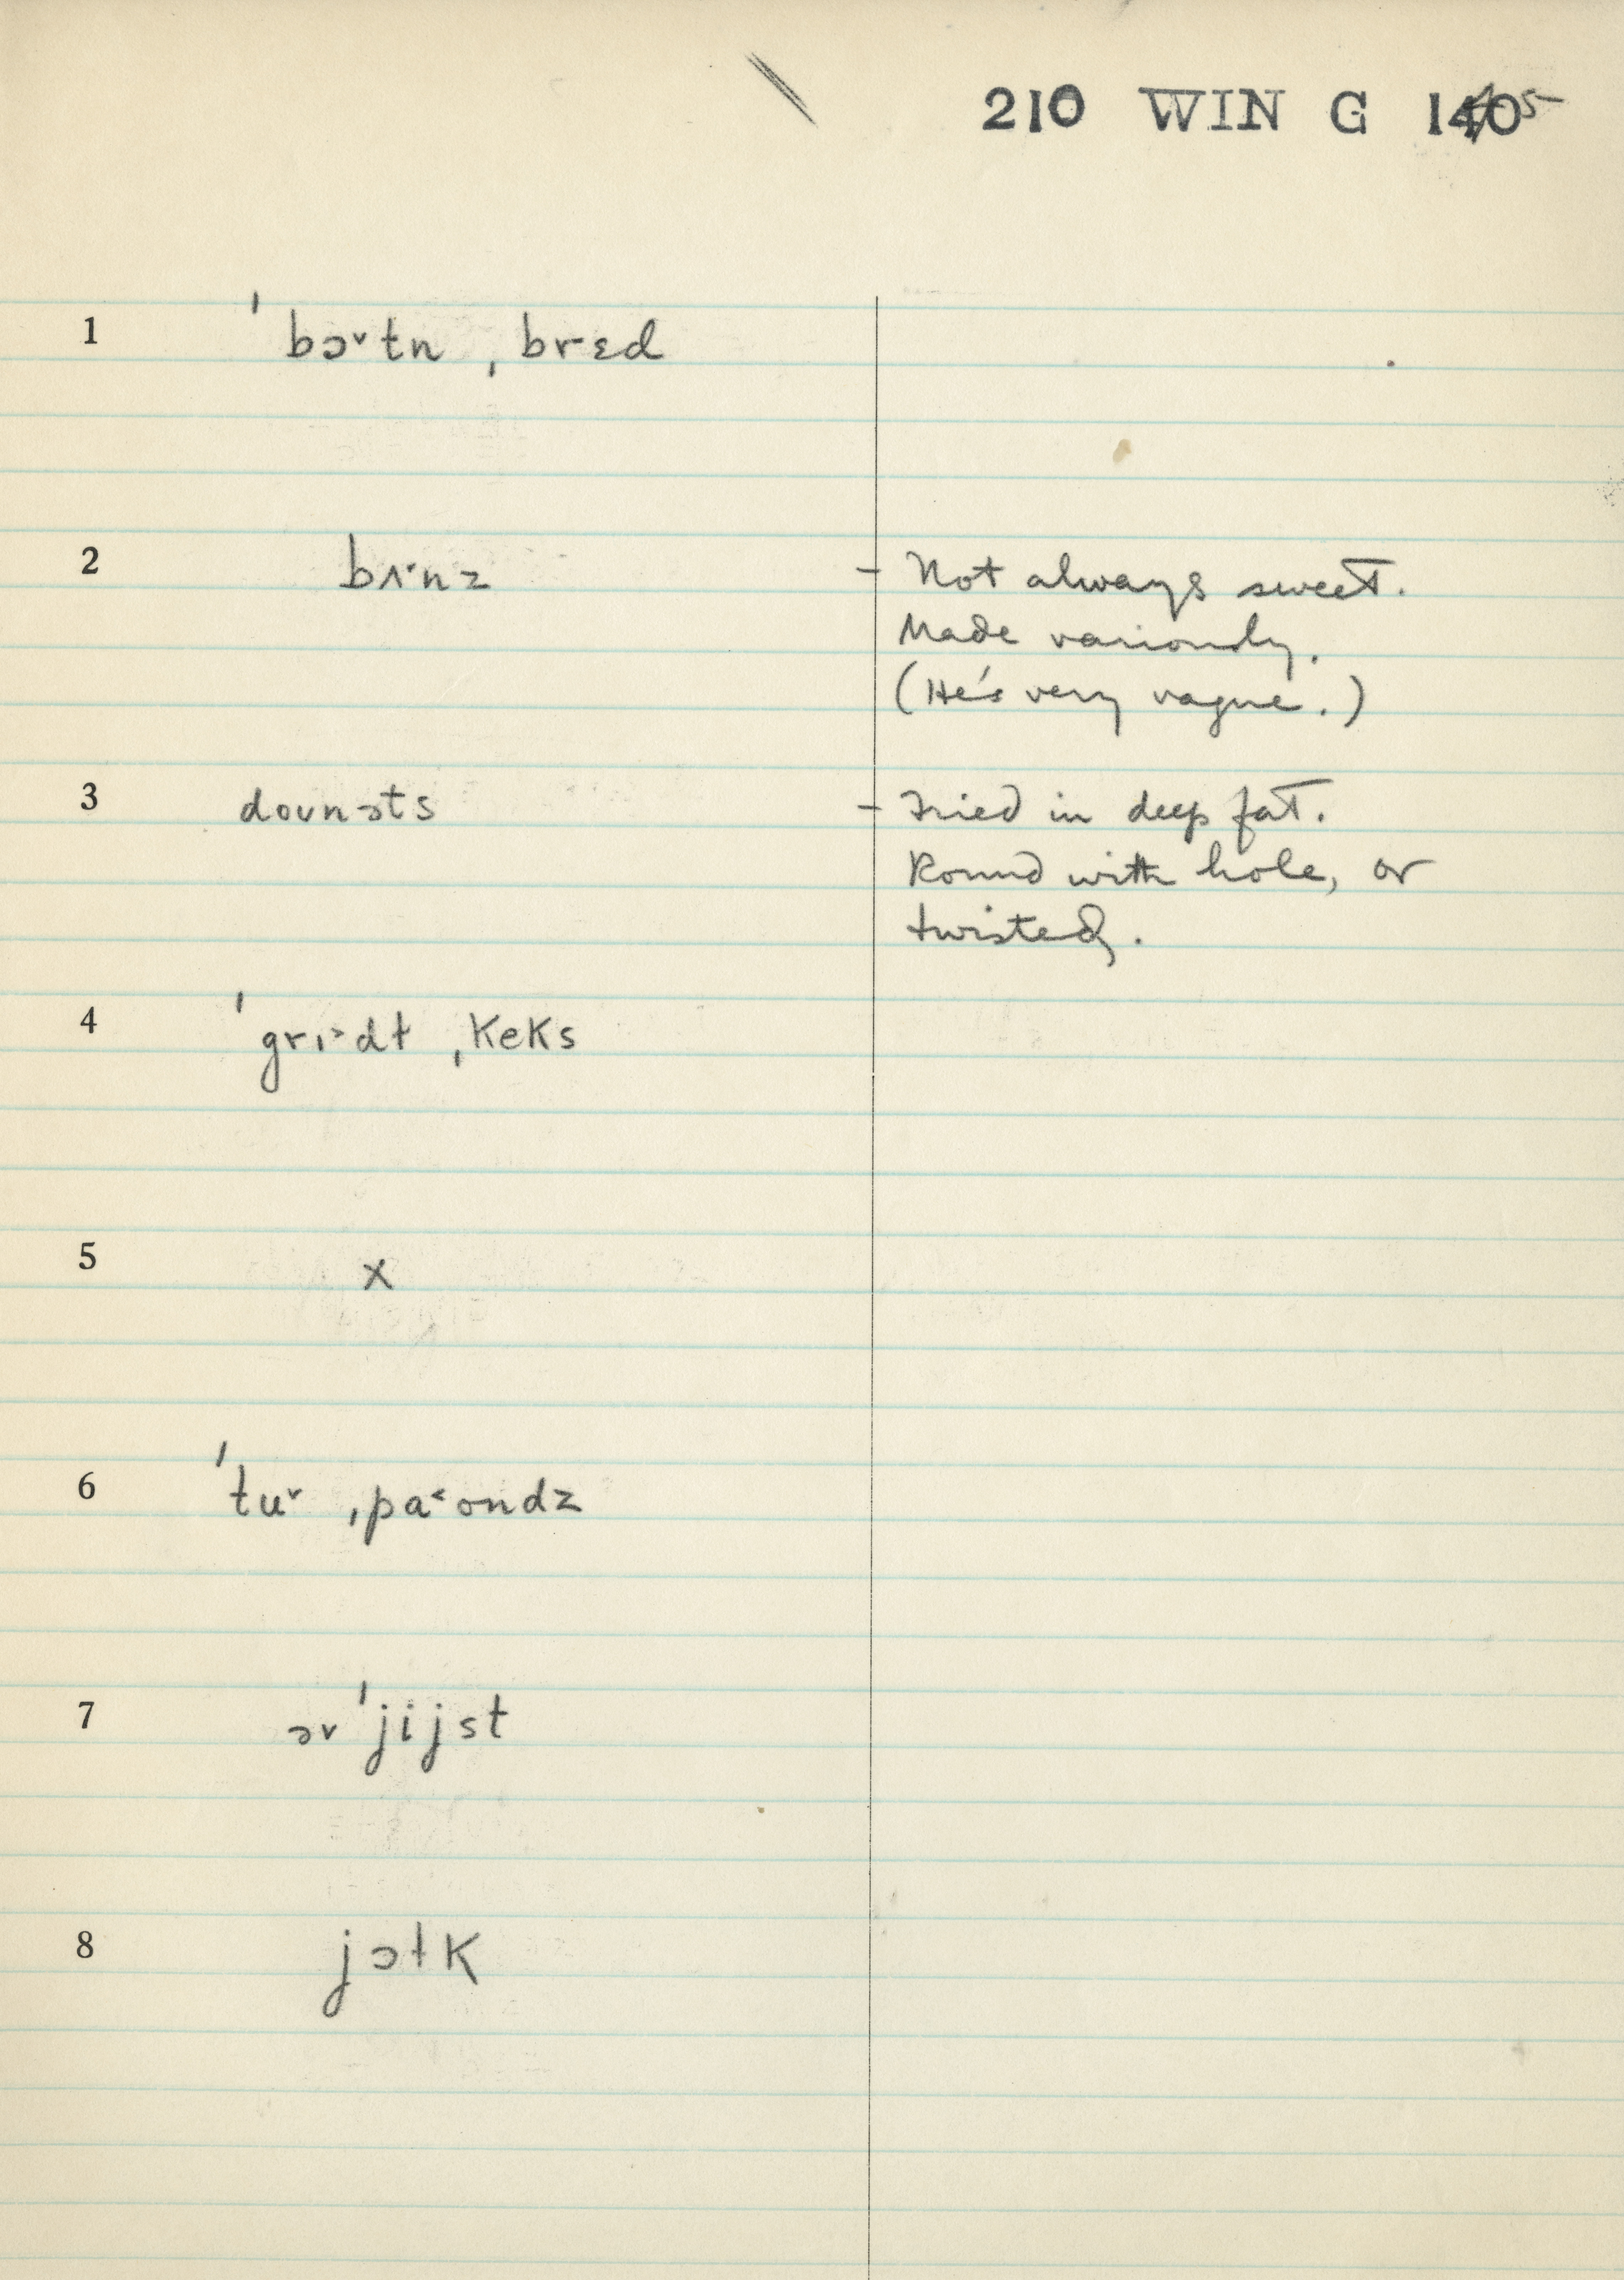 210 WIN G 1405
1 ˈbɔ˅tn ˌbrɛd
2 bʌ˂nz - Not always sweet.
Made variously.
(He's very vague.)
3 doʊnəts - Fried in deep fat.
Round with hole, or
twisted.
4 ˈgrɪ˃dɫ ˌkeks
5 x
6 ˈtu˅ ˌpa˂ondz
7 əv ˈjijst
8 jɔɫk